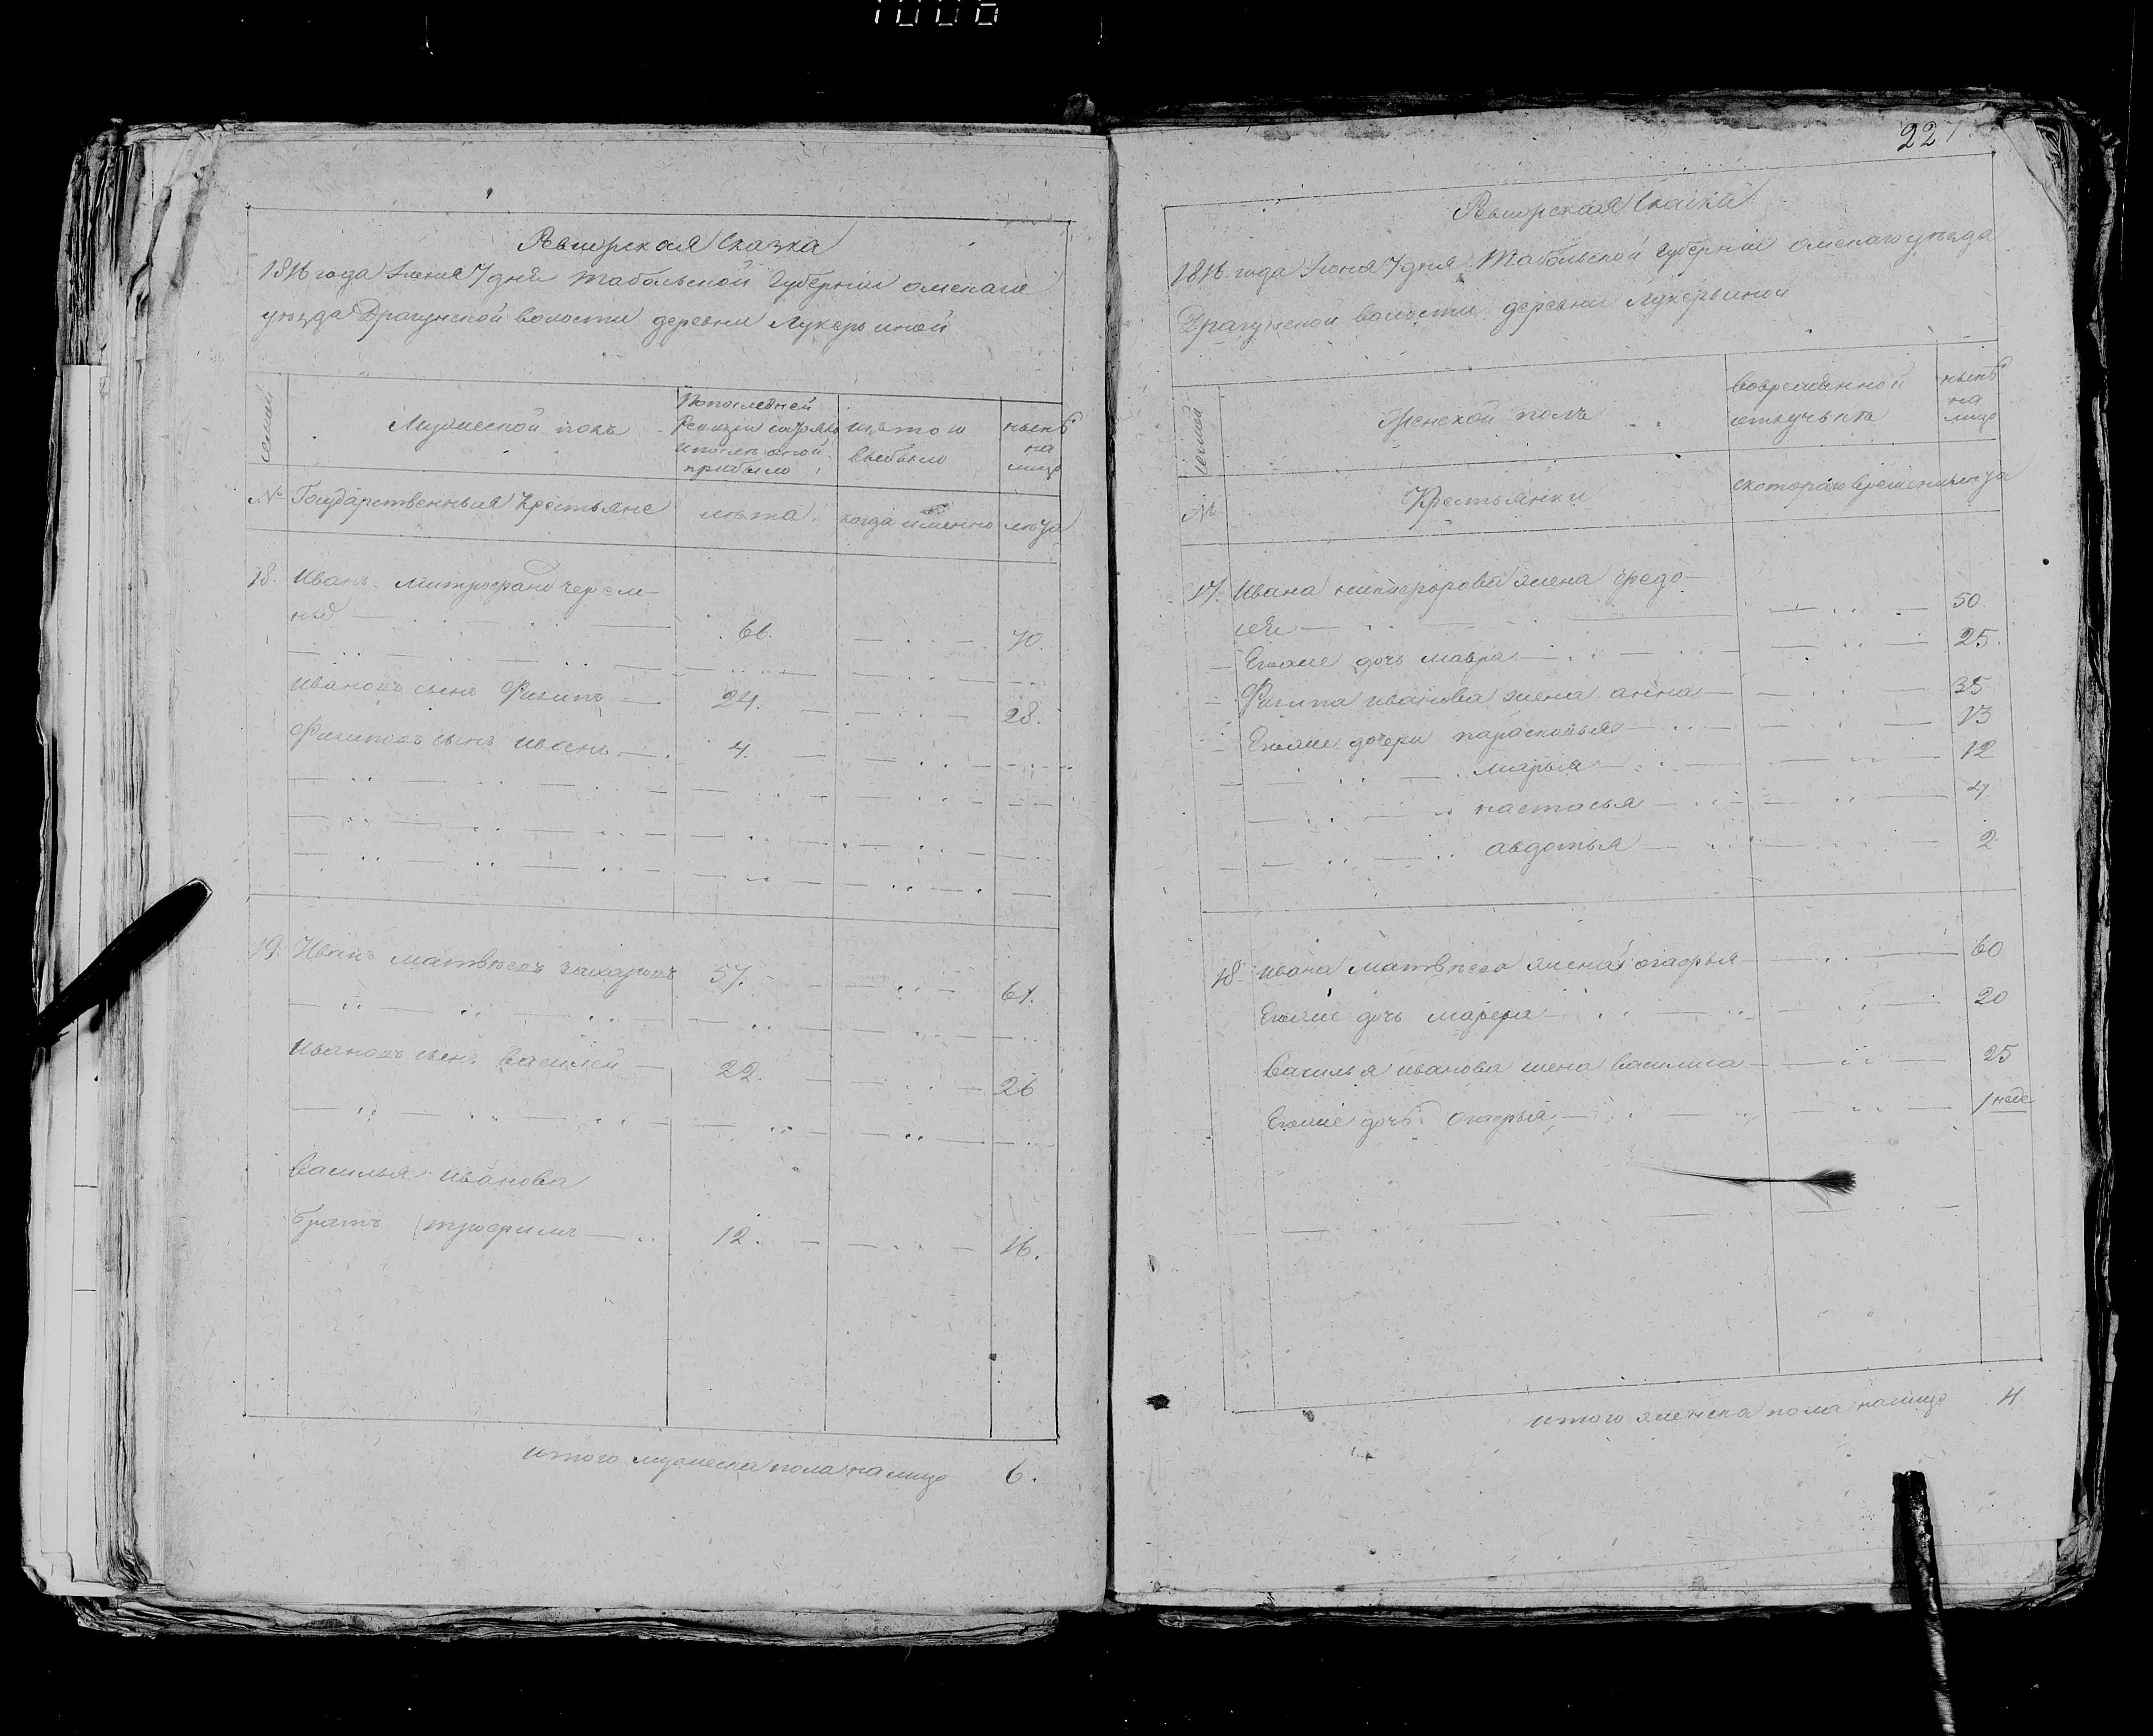 1006
Ревизская Сказка
1816 года Июня 7 дня Табольской Губернии омскаго
уезда Драгунской волости деревни Лукерьиной
семьи
Мужеской полъ
По последней
ревизии состояло
и после оной
прибыло
из того
выбыло
ныне
на
лицо
№ Государственныя Крестьяне
лета
когда имянно
лета
18. Иванъ Митрофанов
66. 70.
Ивановъ сынъ Филипъ 24. 28.
Филиповъ сынъ иванъ 4.
19. Иванъ матвеевъ захаровъ 57. 61.
Ивановъ сынъ василей 22. 26
василья иванова
братъ трофимъ 12. 16.
итого мужеска пола налицо 6.
221
Ревизская Сказка
1816 года Июня 7 дня Табольской Губернии омскаго уезда
Драгунской волости деревни Лукерьиной
семьи
Женской полъ
во временной
отлучьке
ныне
на
лицо
№
Крестьянки
с котораго времени
лета
17. Ивана никифорова жена федо
сея 50
Егоже дочь мавра 25.
Филипа иванова жена анна 35
Егоже дочери парасковья 13
марья 12
настасья 4
авдотья 2
18 ивана матвеева жена огафья 60
Егоже дочь марфа 20
василья иванова жена василиса 25
Егоже дочь огафья 1 неде
итого женска пола налицо 11